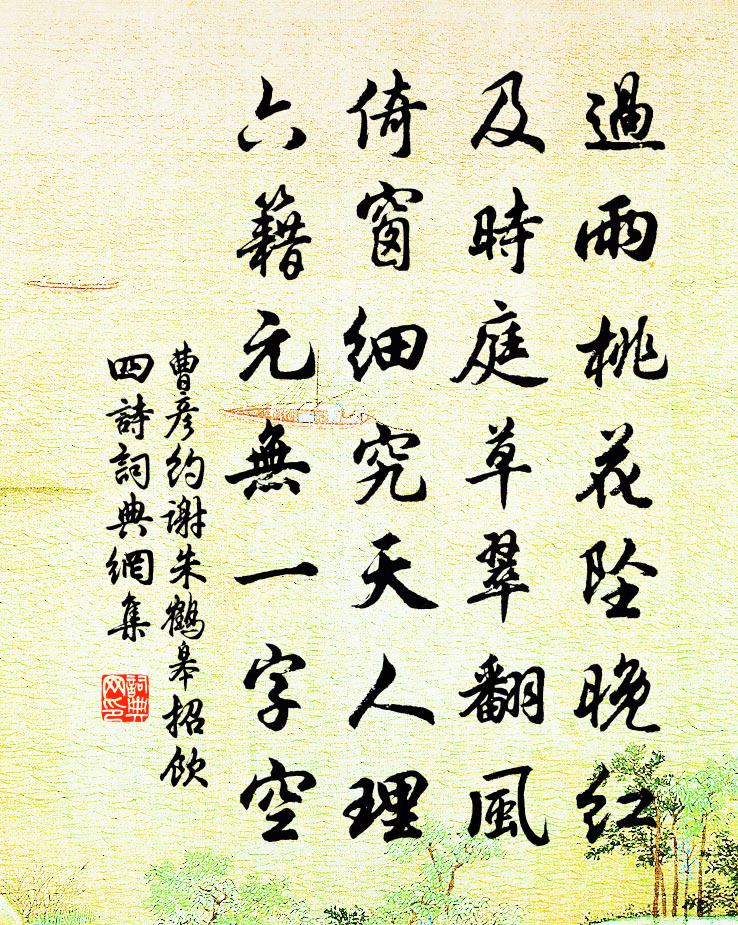 過雨桃花墜晚紅
及時庭草翠翻風
倚窗細究天人理
六籍元無一字空
曹彥約谢朱鶴皋招飲
四詩詞典網集
詞典
网印